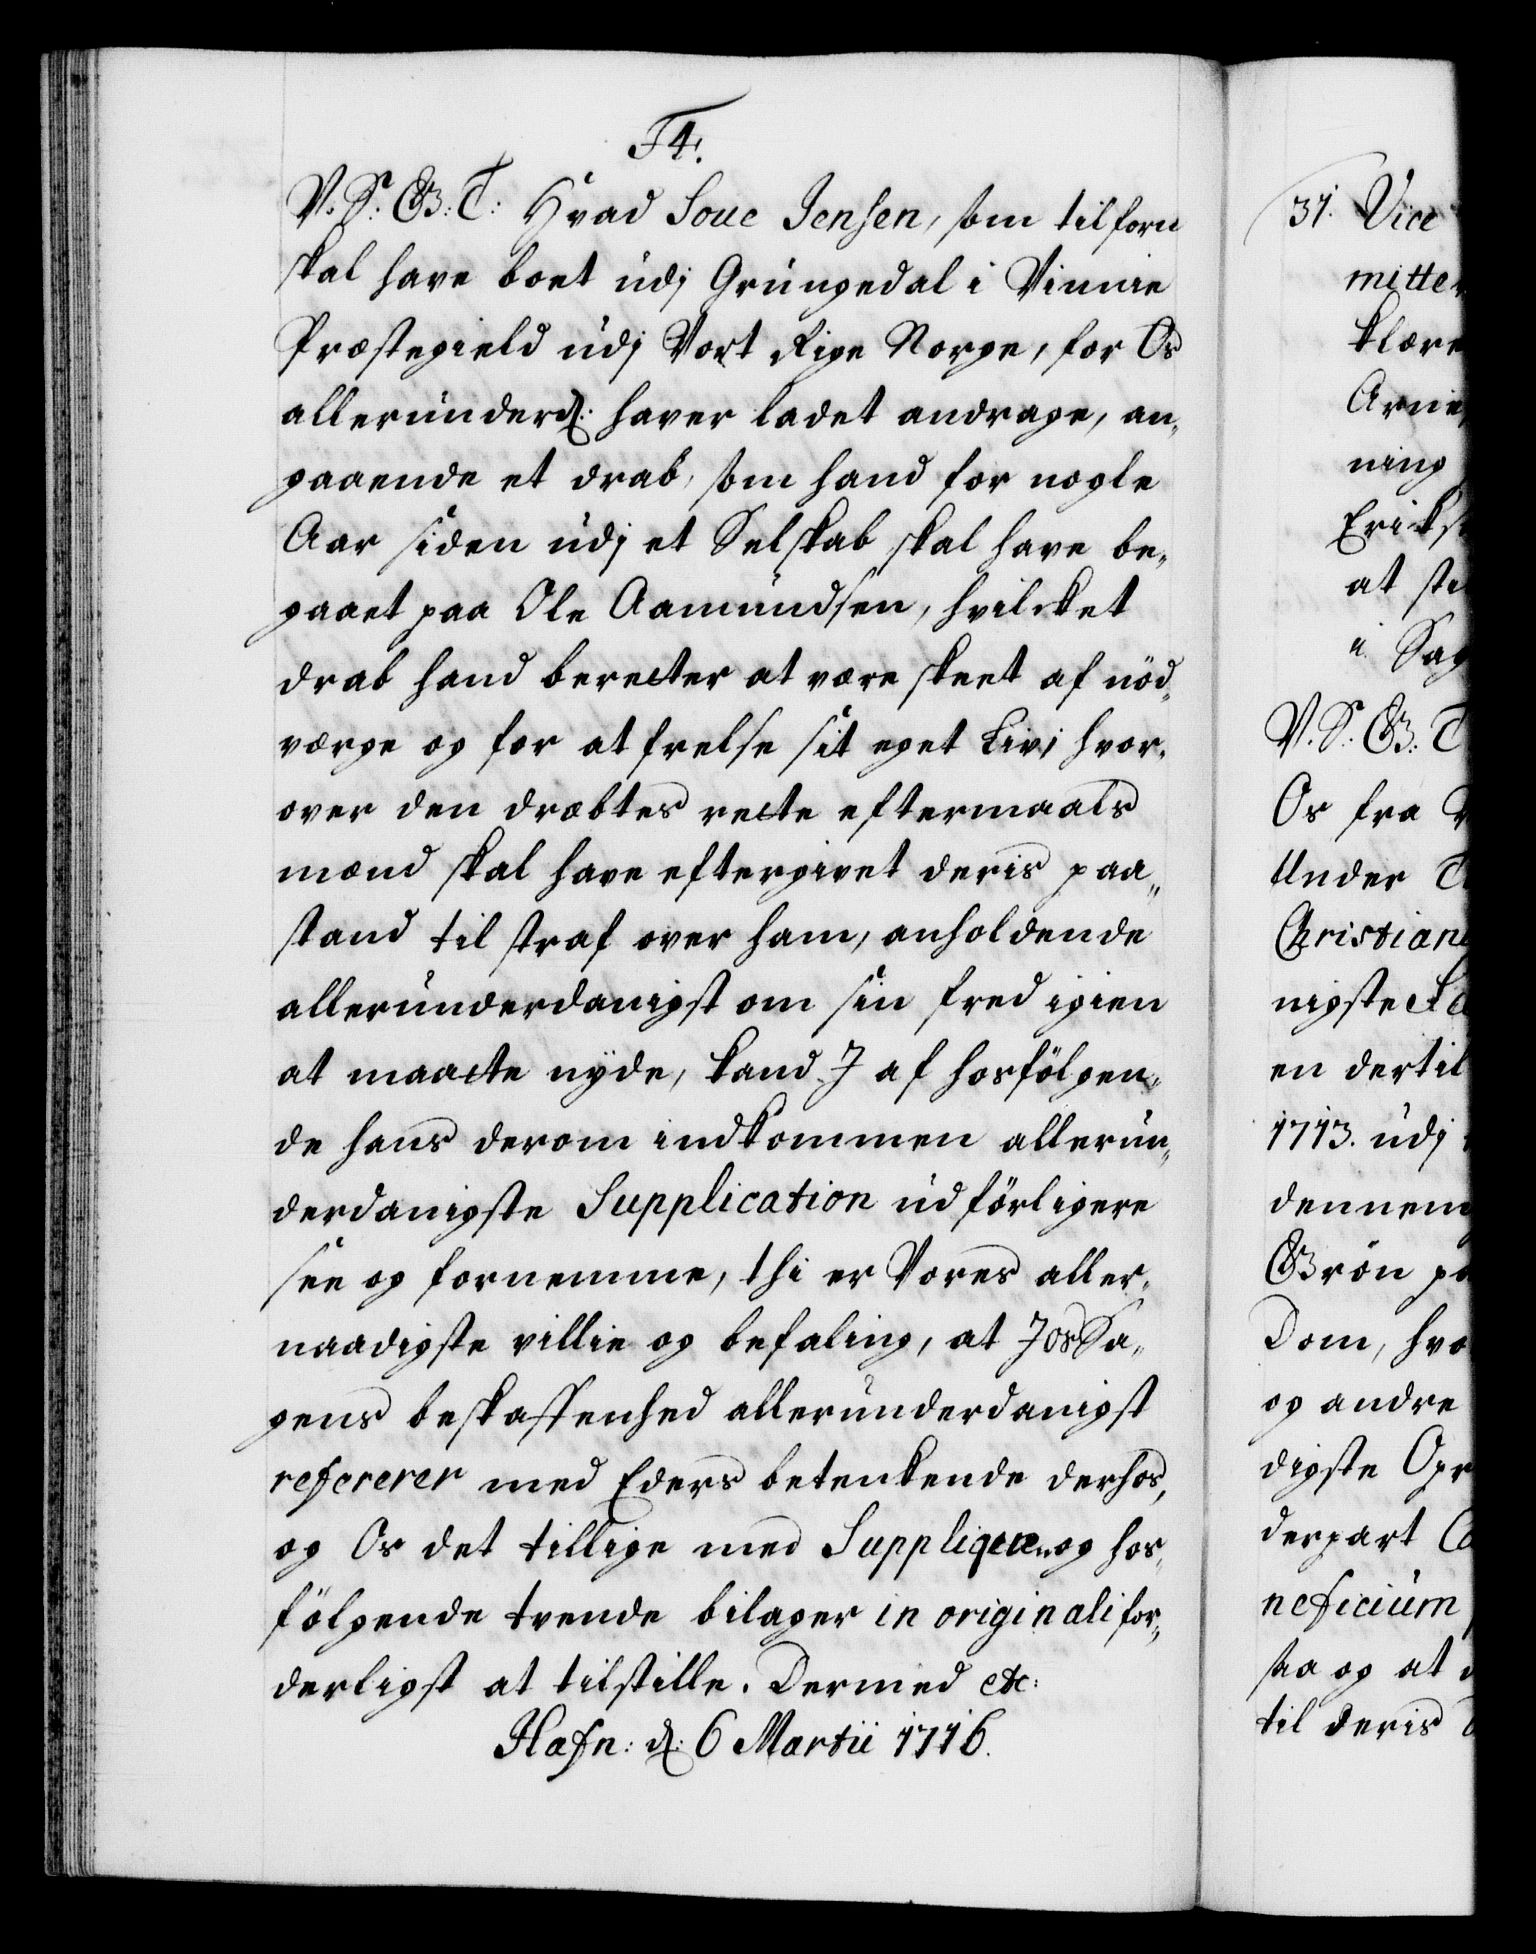 F4.
V. S. G. T. Hvad Soue Jensen, som tilforn
skal have boet udj Grungedal i Vinnie
Præstegield udj Vort Rige Norge, for Os
allerunderd: haver ladet andrage, an-
gaaende et drab, som hand for nogle
Aar siden udj et Selskab skal have be-
gaaet paa Ole Aamundsen, hvilcket
drab hand berecter at være skeet af nöd-
værge og for at frelse sit eget Liv, hvor-
over den dræbtes recte eftermaals
mænd skal have eftergivet deris paa-
stand til straf over ham, anholdende
allerunderdanigst om sin fred igien
at maacte nyde, kand I af hosfölgen-
de hans derom indkommen allerun-
derdanigste Supplication udförligere
see og fornemme, thi er Vores aller-
naadigste villie og befaling, at I Os Sa-
gens beskaffenhed allerunderdanigst
refererer med Eders betenkende derhos,
og Os det tillige med Suppliqven og hos-
fölgende tvende bilager in originali for-
derligst at tilstille. Dermed etc:
Hafn: d: 6 Martii 1716.
31. Vice
mitte
klære
Arne
ning
Eriks
at
i Sag
V. S. G. T
Os fra
Under
Christian
nigste
en dertil
1713. udj
dennem
Grön
Dom, hvo
og andre
digste
derpart
neficium
staa og at
til deris